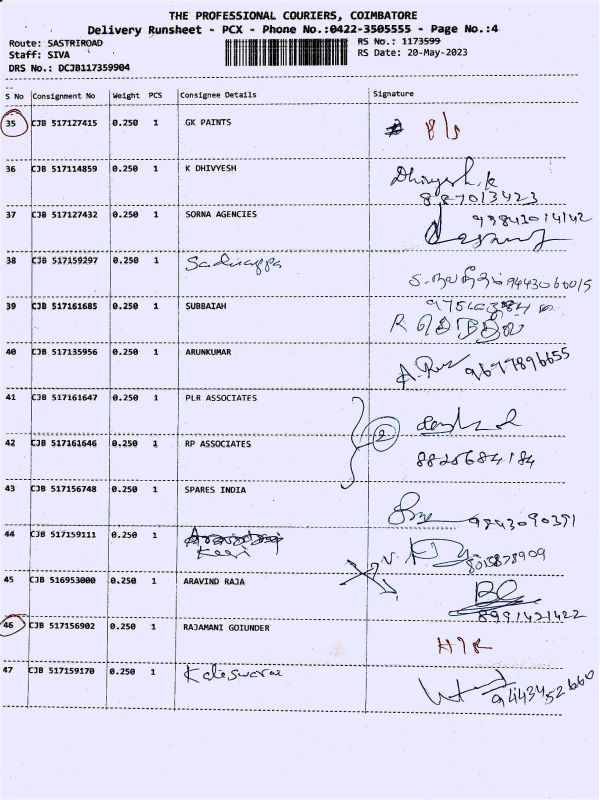 THE PROFESSIONAL COURIERS, COIMBATORE
Delivery Runsheet - PCX - Phone No.:0422-3505555 - Page No.:4
Route: SASTRIROAD RS No.: 1173599
Staff: SIVA RS Date: 20-May-2023
DRS No.: DCJB117359904
S No Consignment No Weight PCS Consignee Details Signature
35 CJB 517127415 0.250 1 GK PAINTS
36 CJB 517114859 0.250 1 K DHIVYESH Dhivyesh.k
887013423
37 CJB 517127432 0.250 1 SORNA AGENCIES
38 CJB 517159297 0.250 1
39 CJB 517161685 0.250 1 SUBBAIAH
40 CJB 517135956 0.250 1 ARUNKUMAR 9677896655
41 CJB 517161647 0.250 1 PLR ASSOCIATES
2
42 CJB 517161646 0.250 1 RP ASSOCIATES 8825684184
43 CJB 517156748 0.250 1 SPARES INDIA 9843090391
44 CJB 517159111 0.250 1 8015878909
45 CJB 516953000 0.250 1 ARAVIND RAJA
8991421422
46 CJB 517156902 0.250 1 RAJAMANI GOIUNDER
47 CJB 517159170 0.250 1 Kaleswarar